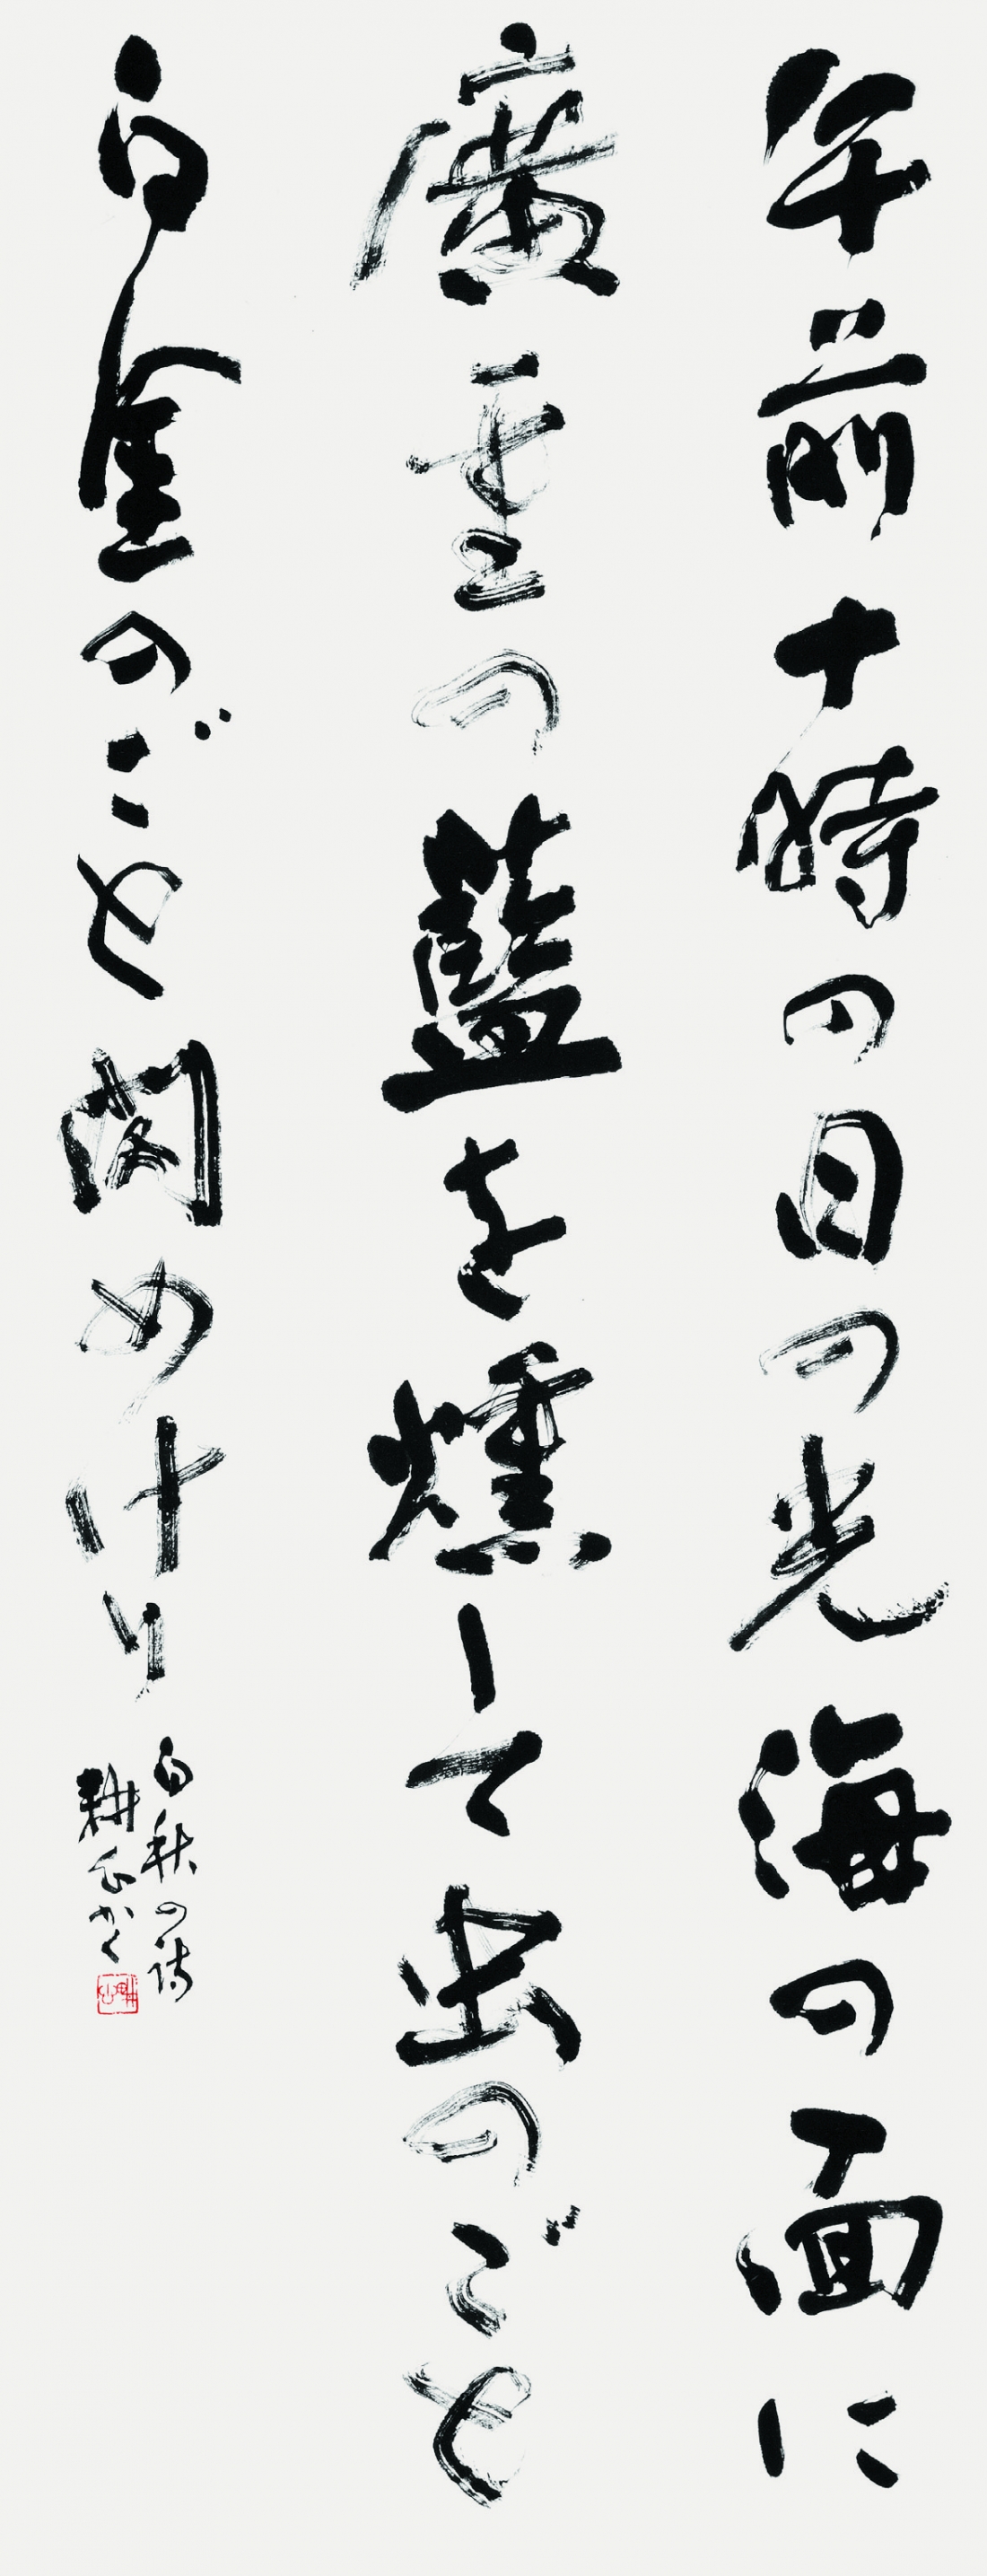 午前十時の日の光海の面に
廣重の藍を燻して虫のごと
白金のごと閃めけり
白秋の詩
耕かく